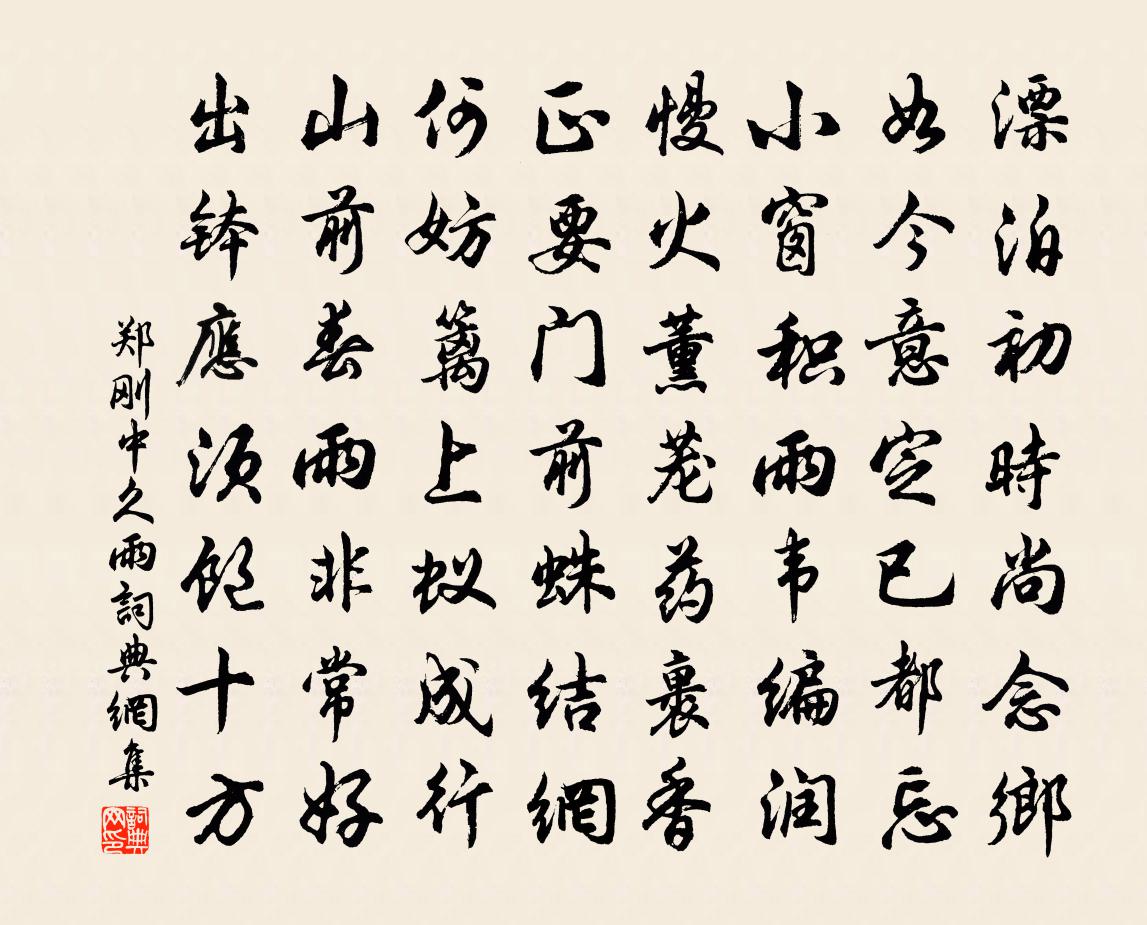 漂泊初時尚念鄉
如今意定已都忘
小窗积雨韦编润
慢火薰茏药裹香
正要门前蛛结網
何妨篱上蚁成行
山前春雨非常好
出钵應须饱十方
郑刚中久雨詞典網集
詞典網印